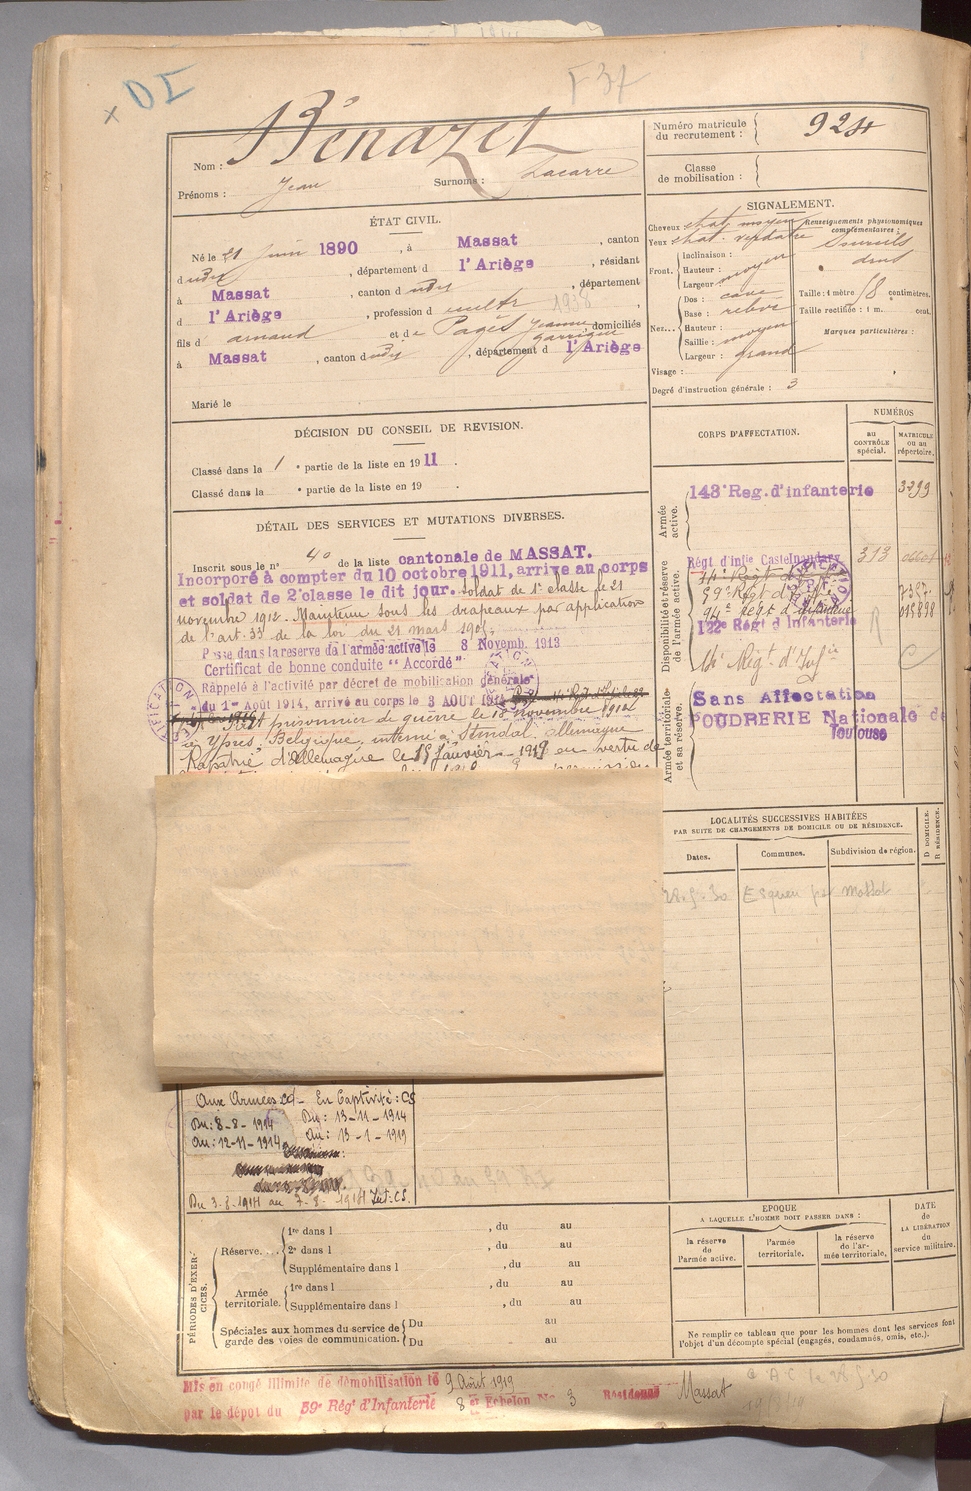 DI
F 37
Nom : Bénazet
Prénoms : Jean Surnoms : Lacarre
Numéro matricule du recrutement : 924
Classe de mobilisation :
ÉTAT CIVIL.
Né le 21 Juin 1890, à Massat, canton
dudit, département d l'Ariège, résidant
à Massat, canton dudit, département
d l'Ariège, profession d cultr 1938
fils d arnaud et de Pagès Jeanne garrigue domiciliés
à Massat, canton dudit, département d l'Ariège
Marié le
SIGNALEMENT.
Cheveux chat. moyen
Yeux chat. verdatre
Renseignements physionomiques complémentaires :
Sourcils
Front. Inclinaison :
Hauteur : moyen
Largeur :
Nez... Dos : cave
Base : relevé
Hauteur :
Saillie : moyen
Largeur : grand
Visage :
Taille : 1 mètre 58 centimètres.
Taille rectifiée : 1 m. cent.
Marques particulières :
Degré d'instruction générale : 3
DÉCISION DU CONSEIL DE REVISION.
Classé dans la 1 e partie de la liste en 1911.
Classé dans la e partie de la liste en 19 .
DÉTAIL DES SERVICES ET MUTATIONS DIVERSES.
Inscrit sous le n° 40 de la liste cantonale de MASSAT.
Incorporé à compter du 10 octobre 1911, arrive au corps
et soldat de 2e classe le dit jour. Soldat de 1e classe le 21
novembre 1912. Maintenu sous les drapeaux par application
de l'art. 33 de la loi du 21 mars 1905.
Passé dans la réserve de l'armée active le 8 Novemb. 1913
Certificat de bonne conduite "Accordé"
Rappelé à l'activité par décret de mobilisation générale
du 1er Août 1914, arrivé au corps le 3 AOUT 1914
prisonnier de guerre le 13 novembre 1914
à Ypres, Belgique. interné à Stendal. Allemagne
Rapatrié d'Allemagne le 15 Janvier 1919 en vertu de
CORPS D'AFFECTATION.
NUMÉROS
AU CONTRÔLE spécial.
MATRICULE ou au répertoire.
Armée active.
143e Reg. d'infanterie 3299
Disponibilité et réserve de l'armée active.
Régt d'infie Castelnaudary 313
14e Régt
59e Régt d'Inf. 7387
94e Régt d'Infanterie
122e Régt d'Infanterie
14e Régt d'Infie
Armée territoriale et sa réserve.
Sans Affectation
POUDRERIE Nationale de
Toulouse
LOCALITÉS SUCCESSIVES HABITÉES
PAR SUITE DE CHANGEMENTS DE DOMICILE OU DE RÉSIDENCE.
Dates. Communes. Subdivision de région. D DOMICILE. R RÉSIDENCE.
28.5.30 Esquen par Massat
Aux Armées En Captivité : CS
Du : 8-8-1914 Du : 13-11-1914
Au : 12-11-1914 Au : 13-1-1919
Du 3-8-1914 au 7-8-1914 Int : CS.
PÉRIODES D'EXERCICES.
Réserve....
1re dans l , du au
2e dans l , du au
Supplémentaire dans l , du au
Armée territoriale.
1re dans l , du au
Supplémentaire dans l , du au
Spéciales aux hommes du service de garde des voies de communication.
Du au
Du au
EPOQUE
A LAQUELLE L'HOMME DOIT PASSER DANS :
la réserve de l'armée active.
l'armée territoriale.
la réserve de l'armée territoriale.
DATE de LA LIBÉRATION du service militaire.
Ne remplir ce tableau que pour les hommes dont les services font
l'objet d'un décompte spécial (engagés, condamnés, omis, etc.).
Mis en congé illimité de démobilisation le 9 Août 1919
par le dépot du 59e Rég' d'Infanterie 8 et Echelon No 3 Massat
A C le 28.5.30